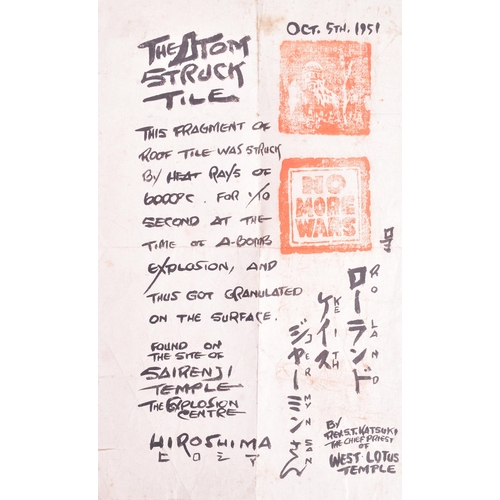 OCT. 5TH, 1951
THE ATOM
STRUCK
TILE
THIS FRAGMENT OF
ROOF TILE WAS STRUCK
BY HEAT RAYS OF
6000°C. FOR 1/10
SECOND AT THE
TIME OF A-BOMB
EXPLOSION, AND
THUS GOT GRANULATED
ON THE SURFACE.
FOUND ON
THE SITE OF
SAIRENJI
TEMPLE
THE EXPLOSION
CENTRE
HIROSHIMA
ヒロシマ
NO
MORE
WARS
ローランド
RO LA N D
ケイス
KE I S TH
ジャーミンさん
JER MYN SAN
BY
REV. S.T. KATSUKI
THE CHIEF PRIEST
OF
WEST LOTUS
TEMPLE